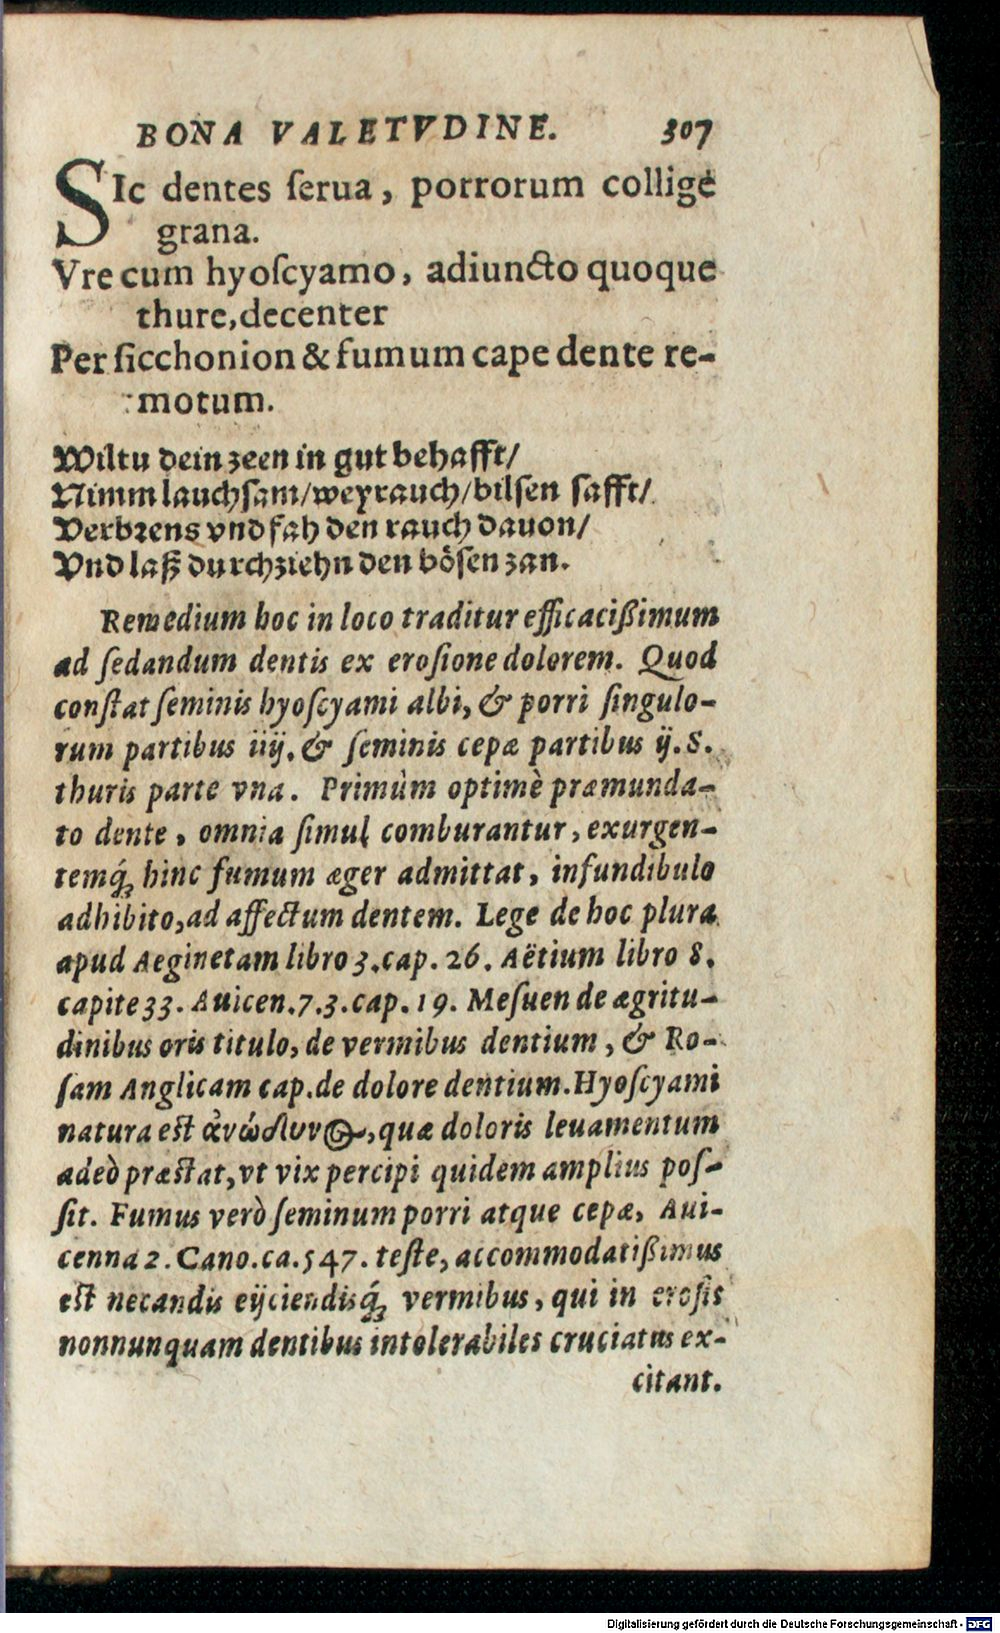 BONA VALETVDINE. 307
SIc dentes ſerua, porrorum collige
grana.
Vre cum hyoſcyamo, adiuncto quoque
thure, decenter
Per ſicchonion & fumum cape dente re-
motum.
Wiltu dein zeen in gut behafft/
Nimm lauchſam/weyrauch/bilſen ſafft/
Verbrens vnd fah den rauch dauon/
Vnd laß durchziehn den böſen zan.
Remedium hoc in loco traditur efficacißimum
ad ſedandum dentis ex eroſione dolorem. Quod
conſtat ſeminis hyoſcyami albi, & porri ſingulo-
rum partibus iiij. & ſeminis cepæ partibus ij. S.
thuris parte vna. Primùm optimè præmunda-
to dente, omnia ſimul comburantur, exurgen-
temq́ꝫ hinc fumum æger admittat, infundibulo
adhibito, ad affectum dentem. Lege de hoc plura
apud Aeginetam libro 3. cap. 26. Aëtium libro 8.
capite 33. Auicen. 7. 3. cap. 19. Meſuen de ægritu-
dinibus oris titulo, de vermibus dentium, & Ro-
ſam Anglicam cap. de dolore dentium. Hyoſcyami
natura est ἀνώδυνος, quæ doloris leuamentum
adeò præstat, vt vix percipi quidem amplius poſ-
ſit. Fumus verò ſeminum porri atque cepæ, Aui-
cenna 2. Cano. ca. 547. teſte, accommodatißimus
est necandis eijciendisq́ꝫ vermibus, qui in eroſis
nonnunquam dentibus intolerabiles cruciatus ex-
citant.
Digitalisierung gefördert durch die Deutsche Forschungsgemeinschaft - DFG